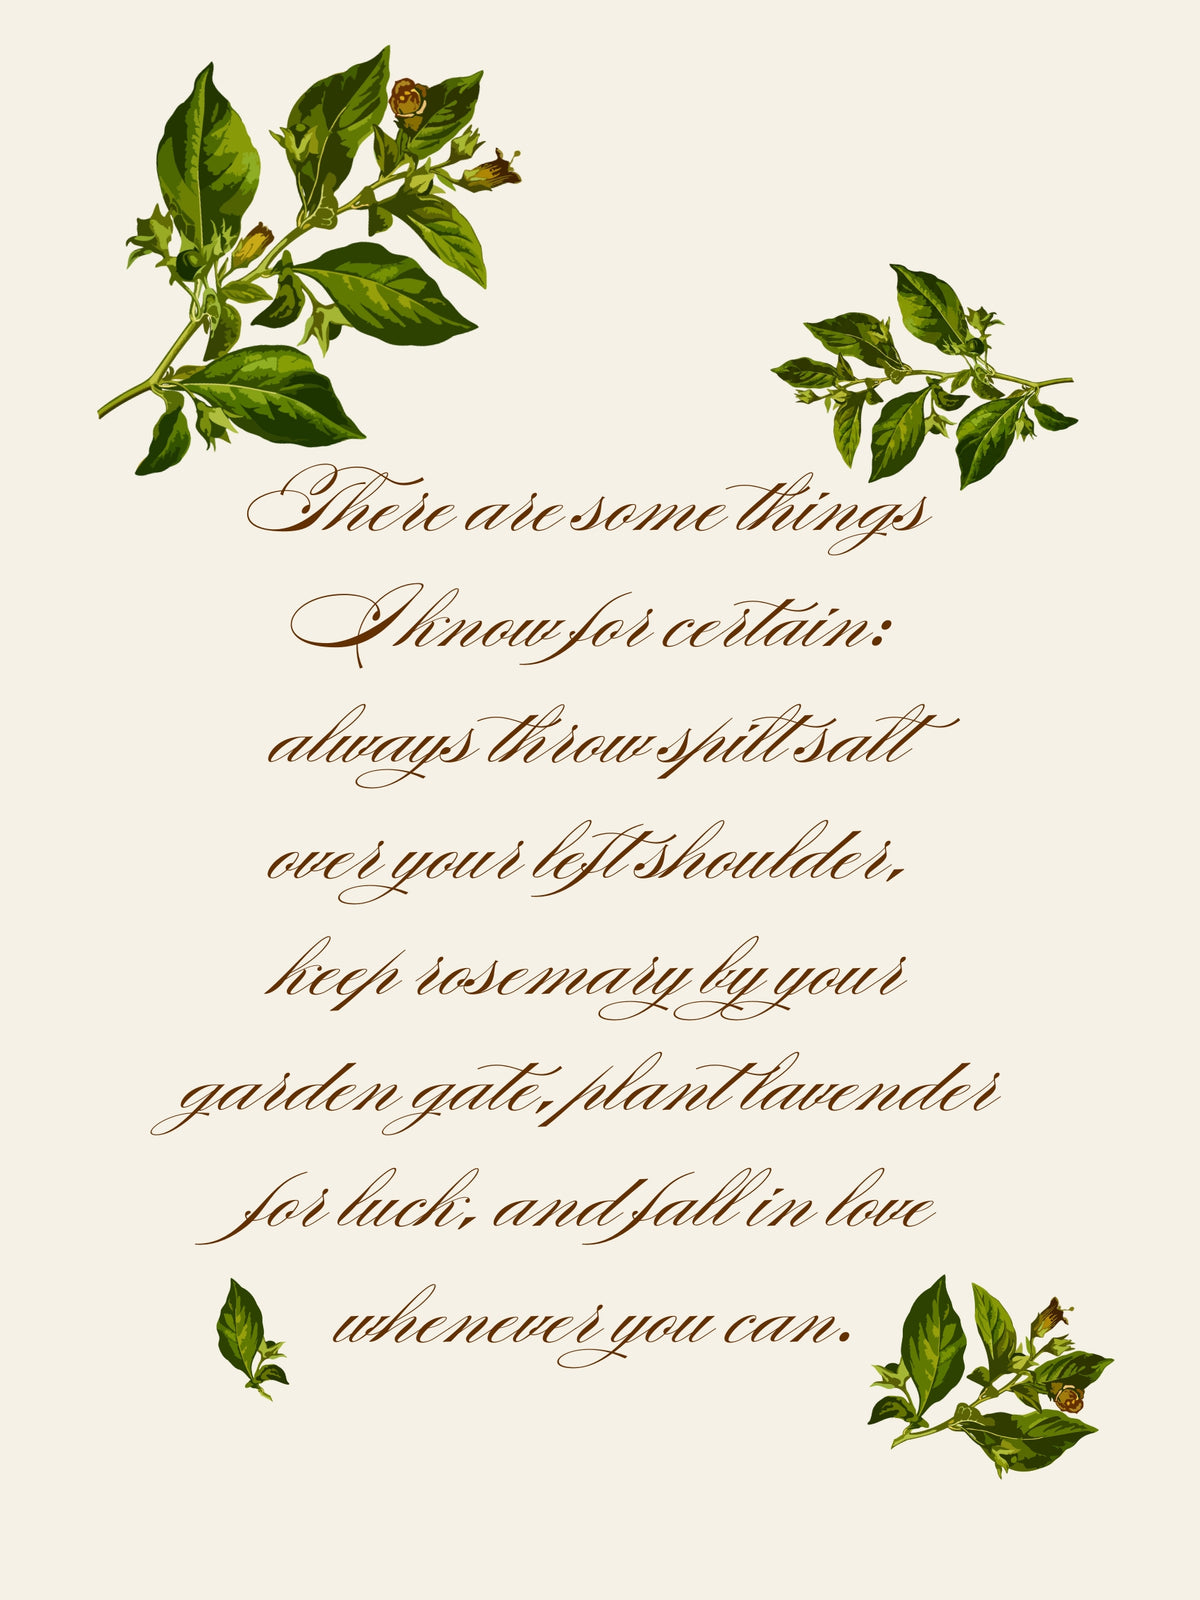 There are some things
I know for certain:
always throw spilt salt
over your left shoulder,
keep rosemary by your
garden gate, plant lavender
for luck, and fall in love
whenever you can.